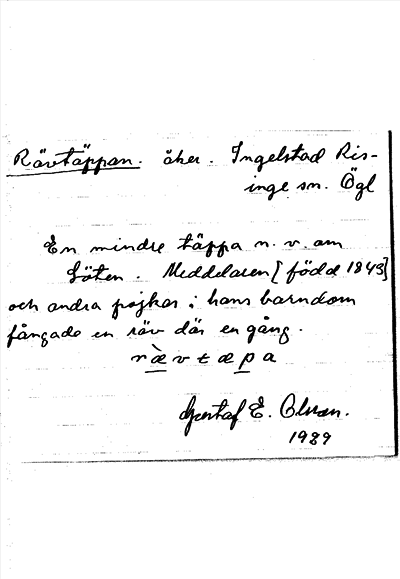 Rävtäppan. åker. Ingelstad Ris-
inge sn. Ögl
En mindre täppa n. v. om
Göten. Meddelaren [född 1843]
och andra pojkar i hans barndom
fångade en räv där en gång.
rævtæpa
Gustaf E. Olsson.
1929